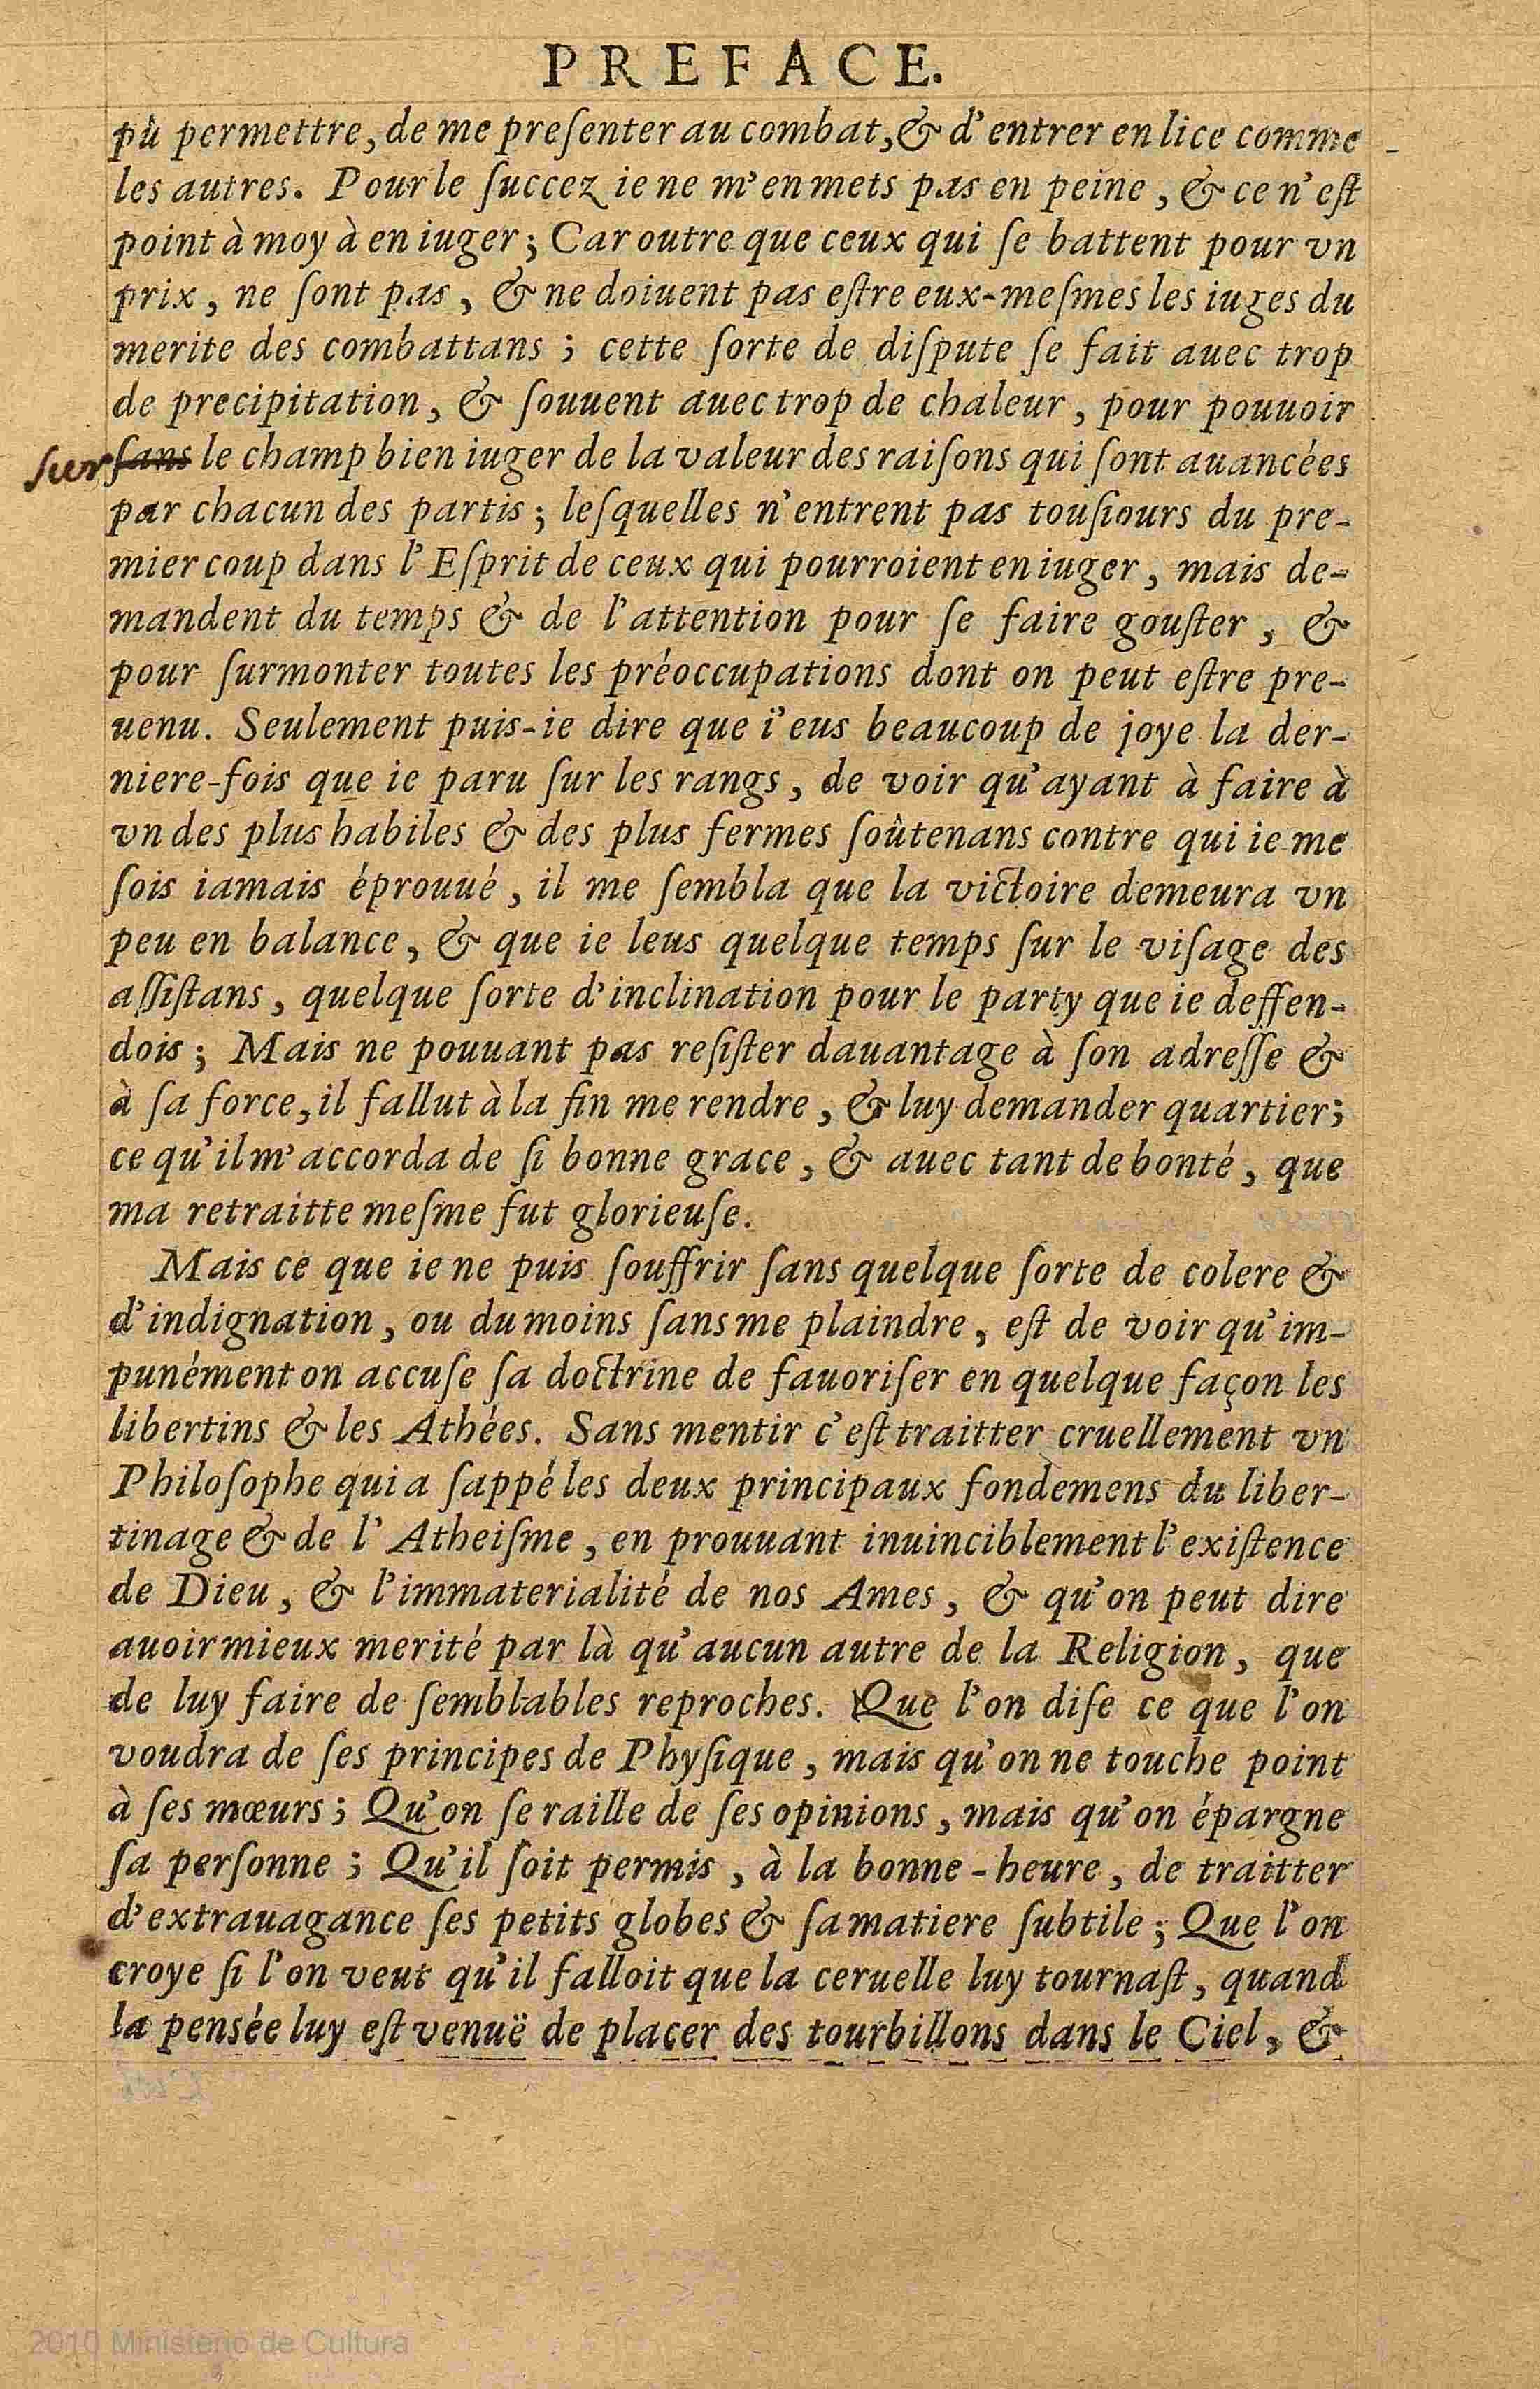 PREFACE.
pû permettre, de me preſenter au combat, & d'entrer en lice comme
les autres. Pour le ſuccez ie ne m'en mets pas en peine, & ce n'eſt
point à moy à en iuger; Car outre que ceux qui ſe battent pour vn
prix, ne ſont pas, & ne doiuent pas eſtre eux-meſmes les iuges du
merite des combattans; cette ſorte de diſpute ſe fait auec trop
de precipitation, & ſouuent auec trop de chaleur, pour pouuoir
sur ſans le champ bien iuger de la valeur des raiſons qui ſont auancées
par chacun des partis; leſquelles n'entrent pas touſiours du pre-
mier coup dans l'Eſprit de ceux qui pourroient en iuger, mais de-
mandent du temps & de l'attention pour ſe faire gouſter, &
pour ſurmonter toutes les préoccupations dont on peut eſtre pre-
uenu. Seulement puis-ie dire que i'eus beaucoup de joye la der-
niere-fois que ie paru ſur les rangs, de voir qu'ayant à faire à
vn des plus habiles & des plus fermes ſoûtenans contre qui ie me
ſois iamais éprouué, il me ſembla que la victoire demeura vn
peu en balance, & que ie leus quelque temps ſur le viſage des
aſſiſtans, quelque ſorte d'inclination pour le party que ie deffen-
dois; Mais ne pouuant pas reſiſter dauantage à ſon adreſſe &
à ſa force, il fallut à la fin me rendre, & luy demander quartier;
ce qu'il m'accorda de ſi bonne grace, & auec tant de bonté, que
ma retraitte meſme fut glorieuſe.
Mais ce que ie ne puis ſouffrir ſans quelque ſorte de colere &
d'indignation, ou du moins ſans me plaindre, eſt de voir qu'im-
punément on accuſe ſa doctrine de fauoriſer en quelque façon les
libertins & les Athées. Sans mentir c'eſt traitter cruellement vn
Philoſophe qui a ſappé les deux principaux fondemens du liber-
tinage & de l'Atheiſme, en prouuant inuinciblement l'exiſtence
de Dieu, & l'immaterialité de nos Ames, & qu'on peut dire
auoir mieux merité par là qu'aucun autre de la Religion, que
de luy faire de ſemblables reproches. Que l'on diſe ce que l'on
voudra de ſes principes de Phyſique, mais qu'on ne touche point
à ſes mœurs; Qu'on ſe raille de ſes opinions, mais qu'on épargne
ſa perſonne; Qu'il ſoit permis, à la bonne-heure, de traitter
d'extrauagance ſes petits globes & ſa matiere ſubtile; Que l'on
croye ſi l'on veut qu'il falloit que la ceruelle luy tournaſt, quand
la pensée luy eſt venuë de placer des tourbillons dans le Ciel, &
2010 Ministerio de Cultura